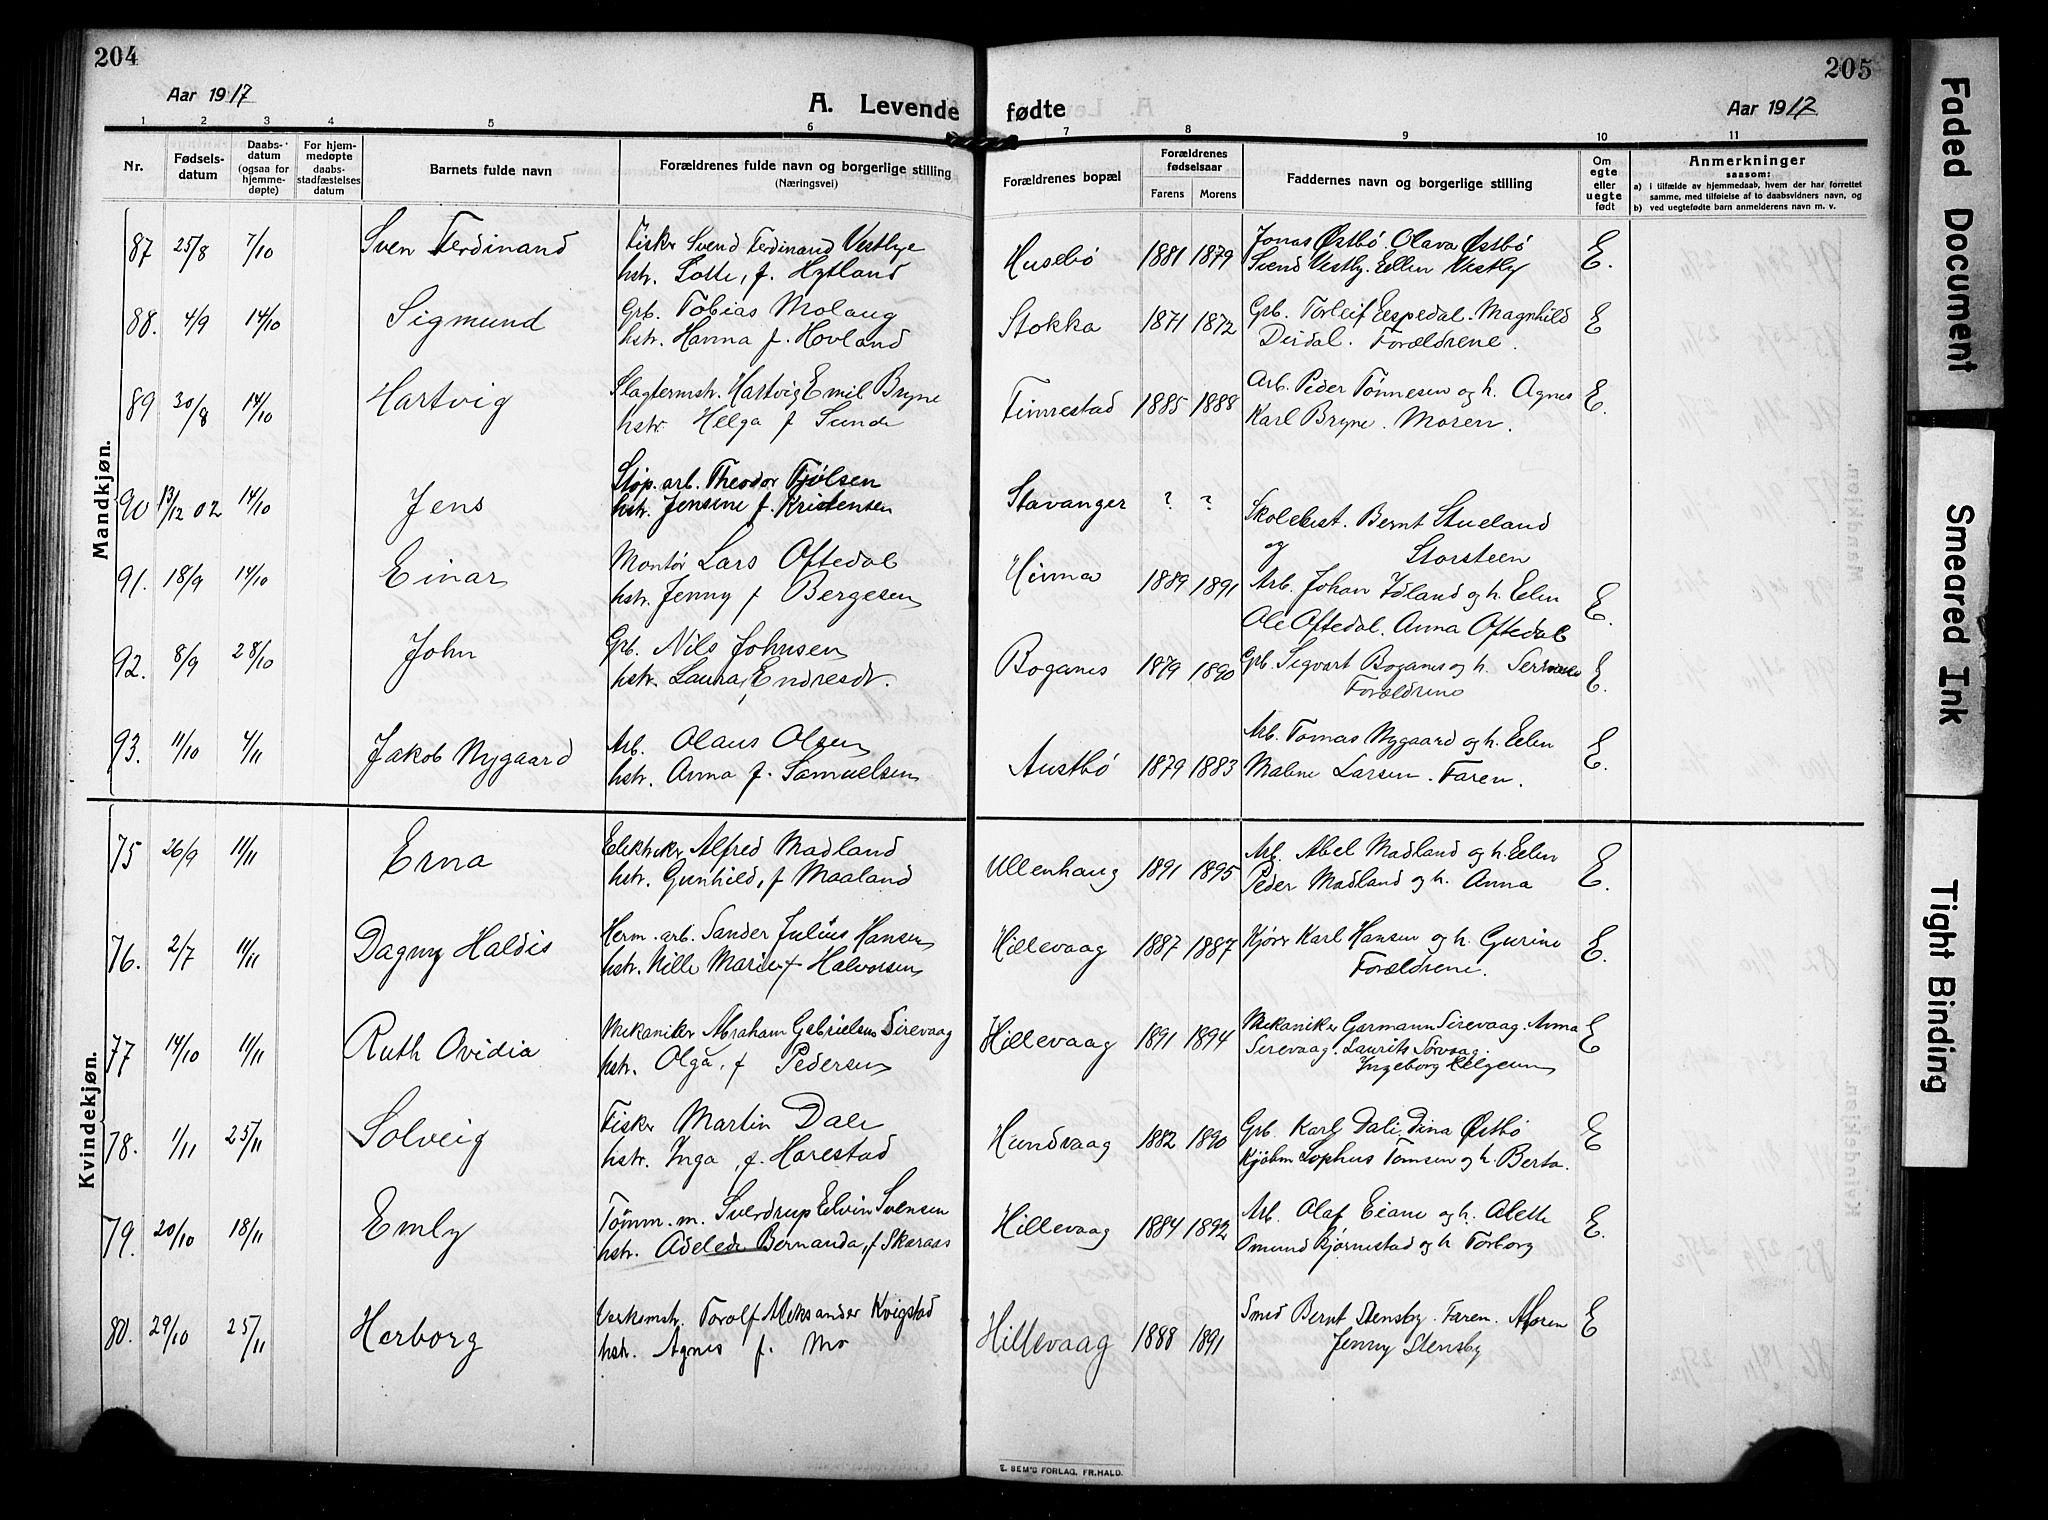 204
205
Aar 1917
A. Levende
fødte
Aar 1917
1 2 3 4 5 6 7 8 9 10 11
Nr.
Fødsels-
datum
Daabs-
datum
(ogsaa for
hjemme-
døpte)
For hjem-
medøpte
daabs-
stadfæstelses
datum
Barnets fulde navn
Forældrenes fulde navn og borgerlige stilling
(Næringsvei)
Forældrenes bopæl
Forældrenes
fødselsaar
Farens Morens
Faddernes navn og borgerlige stilling
Om
egte
eller
uegte
født
Anmerkninger
saasom:
a) i tilfælde av hjemmedaab, hvem der har forrettet
samme, med tilføielse af to daabsvidners navn, og
b) ved uegtefødte barn anmelderens navn m. v.
Mandkjøn.
87 25/8 7/10 Sven Ferdinand Fisker Svend Ferdinand Vestbye Husebö 1881 1879 Jonas Østbö. Olava Østbö E.
hstr. Lotte, f. Hytland Svend Vestby. Ellen Vestby
88. 4/9 14/10 Sigmund Grb. Tobias Molaug Stokka 1871 1872 Grb. Torleif Espedal. Magnhild E
hstr. Hanna f. Hovland Dirdal. Forældrene.
89 30/8 14/10 Hartvig Slagtermstr. Hartvig Emil Bryne Finnestad 1885 1888 Arb. Peder Tønnesen og h. Agnes E.
hstr. Helga f Sunde Karl Bryne. Moren.
90 13/12 02 14/10 Jens Støp. arb. Theodor Fjølsen Stavanger ? ? Skolebest. Bernt Stueland
hstr. Jensine f. Kristensen og Storsteen
91. 18/9 14/10 Einar Montør Lars Oftedal Hinna 1889 1891 Arb. Johan Idland og h. Elen E.
hstr. Jenny f Bergesen Ole Oftedal. Anna Oftedal
92. 8/9 28/10 John Grb. Nils Johnsen Boganes 1879 1890 Grb. Sigvart Boganes og h. E.
hstr. Laura, Endresdr. Forældrene
93. 11/10 4/11 Jakob Nygaard Arb. Olaus Olsen Austbö 1879 1883 Arb. Tomas Nygaard og h. Elen E.
hstr. Anna f. Samuelsen Malene Larsen. Faren.
Kvindekjøn.
75 26/9 11/11 Erna Elektriker Alfred Madland Ullenhaug 1891 1895 Arb. Abel Madland og h. Elen E.
hstr. Gunhild, f Maaland Peder Madland og h. Anna
76. 2/7 11/11 Dagny Haldis Herm. arb. Sander Julius Hansen Hillevaag 1887 1887 Kjører Karl Hansen og h. Gurine E.
hstr. Nille Marie f Halvorsen Forældrene.
77 14/10 11/11 Ruth Ovidia Mekaniker Abraham Gabrielsen Sirevaag Hillevaag 1891 1894 Mekaniker Garmann Sirevaag. Anna E
hstr. Olga, f Pedersen Sirevaag. Laurits Sörvaag.
Ingeborg Helgesen
78. 1/11 25/11 Solveig Fisker Martin Dale Hundvaag 1882 1890 Grb. Karl Dale. Dina Østbö E
hstr. Inga, f. Harestad Kjøbm Sophus Tomsen og h. Berta.
79. 20/10 18/11 Emly Tømm. m. Sverdrup Elvin Svensen Hillevaag 1884 1892 Arb. Olaf Eiane og h. Alette E.
hstr. Adelede Bernanda, f Skeraas Omund Kjørnestad og h Torborg
80. 29/10 25/11 Herborg Verksmstr. Torolf Aleksander Kvigstad Hillevaag 1888 1891 Smed Bernt Stensby. Faren. Moren E
hstr. Agnes f. Mo Jenny Stensby
E. SEM'S FORLAG, FR.HALD.
Faded Document
Smeared Ink
Tight Binding